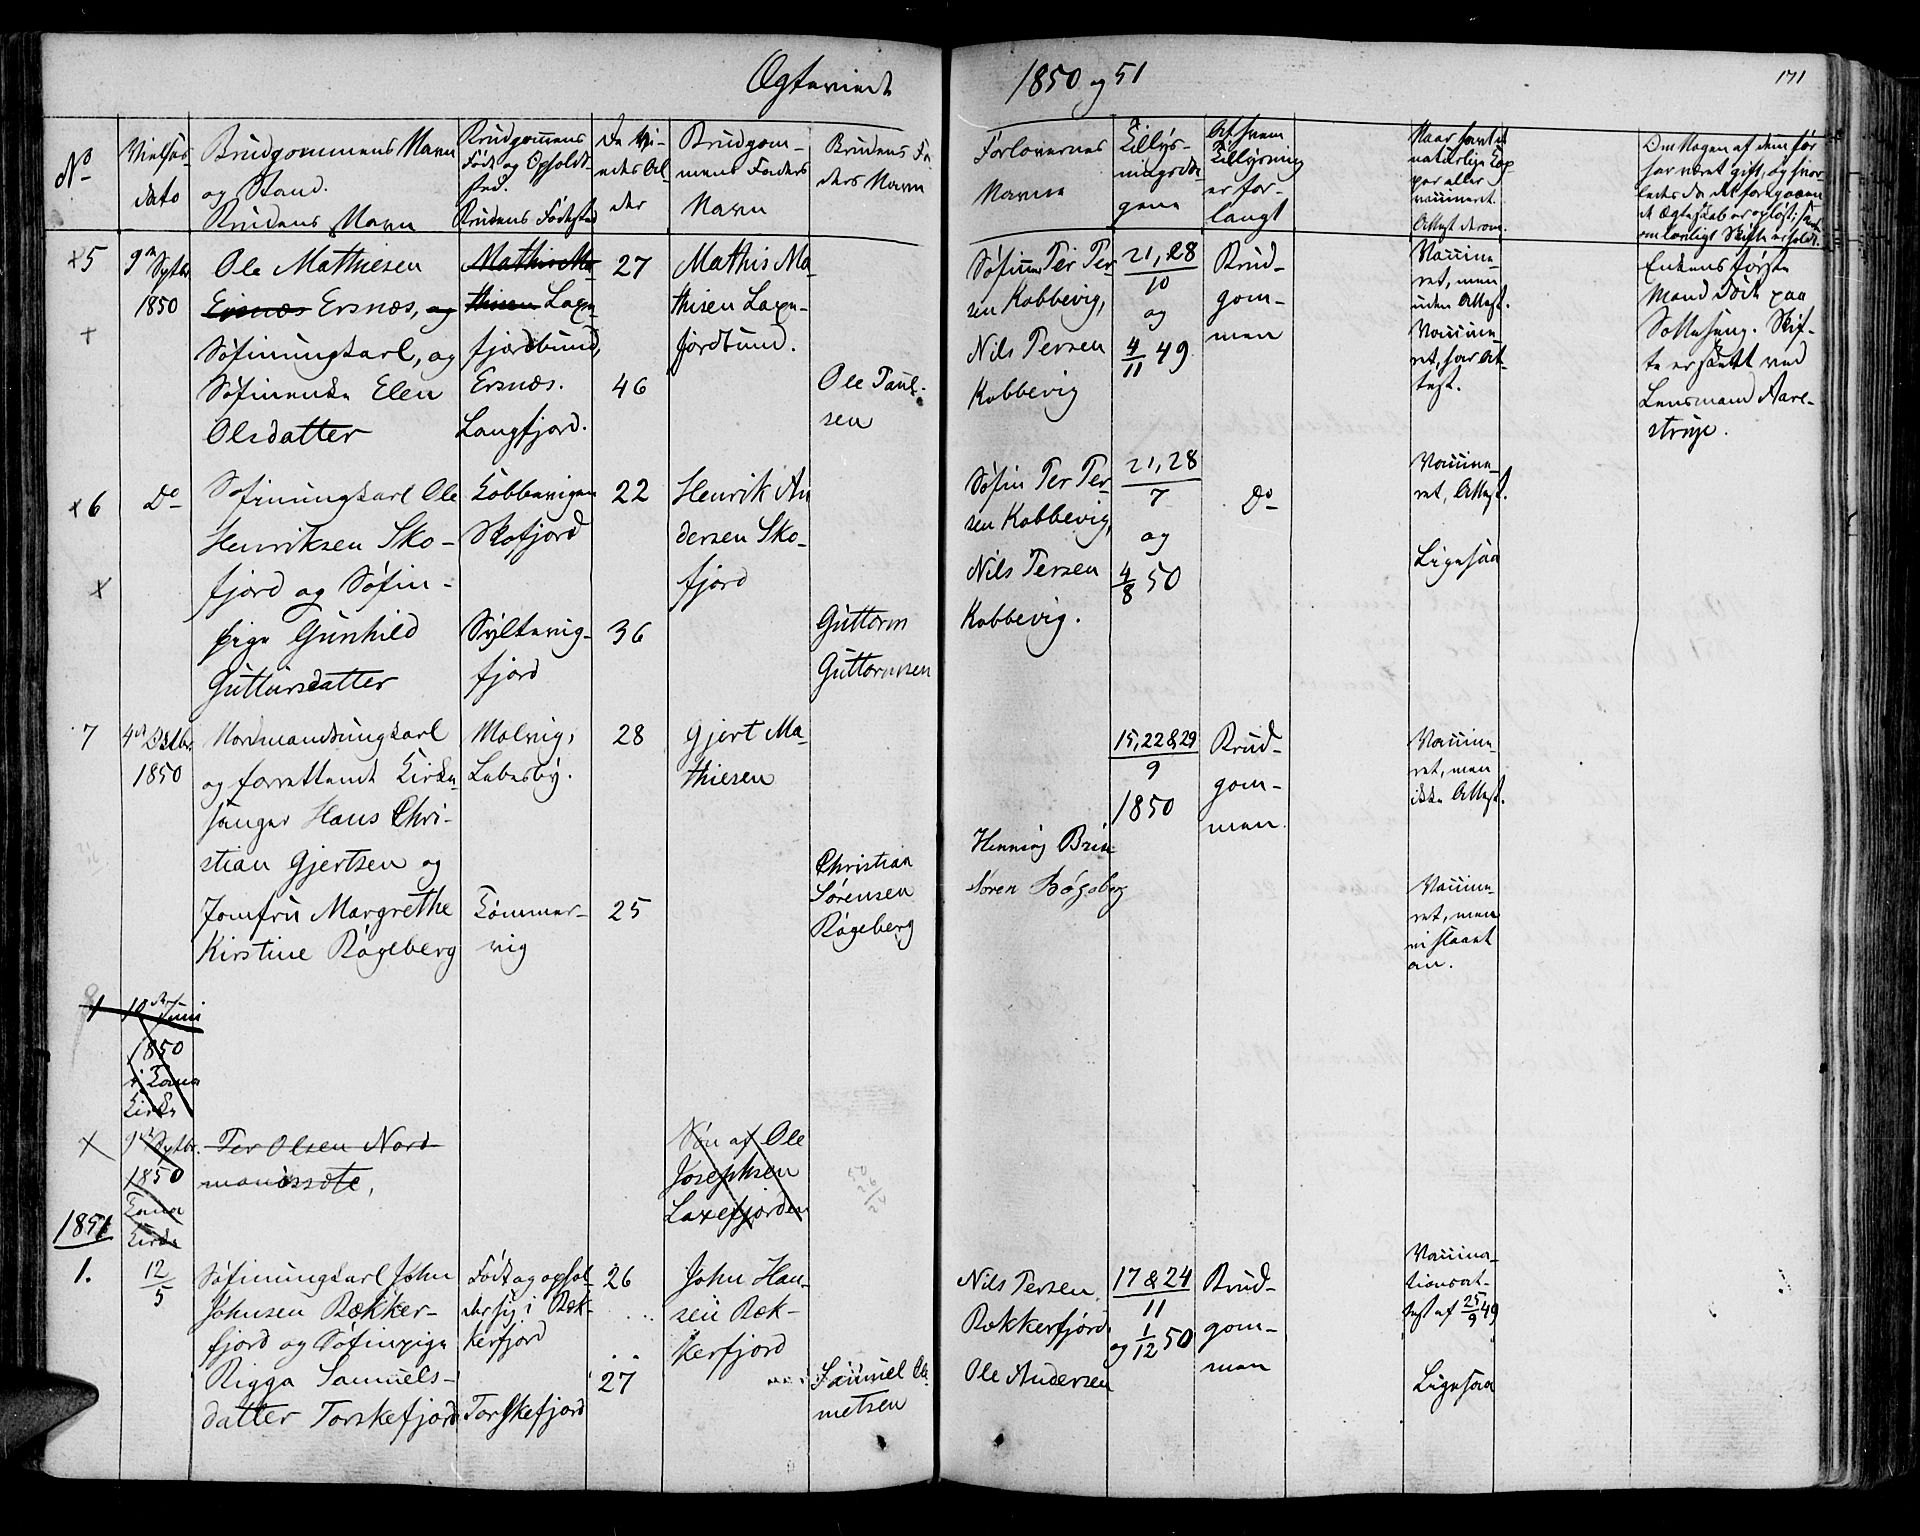 Ægteviede
1850 og 51
171
No
Vielses-
dato
Brudgommens Navn
og Stand.
Brudens Navn
Brudgommens
Føde og Opholdt-
sted.
Brudens Fødested
De Vi-
edes Al-
der
Brudgom-
mens Faders
Navn
Brudens Fa-
ders Navn
Forlovernes
Navne
Tillys-
ningsda-
gene
Af hvem
Tillysning
er for-
langt
naturlige Kop-
per eller
vaccineret.
Attest derom.
Om Nogen af dem før
har været gift, og hvor-
ledes da det foregaaen-
de Ægteskab er opløst;
om lovligt Skifte er holdt.
5
9de Septbr
1850
Ole Mathiesen
Ersnæs Ersnæs, og
Søfinungkarl, og
Søfinenke Elen
Olsdatter
Mathis Ma-
thisen Laxe-
fjordbund,
Ersnæs.
Langfjord.
27
46
Mathis Ma-
thisen Laxe-
fjordbund.
Ole Paul-
sen
Søfinne Per Per-
sen Kobbevig,
og
Nils Persen
Kobbevig
21, 28
10
4
11 49
Brud-
gom-
men
Vaccine-
ret, men
uden Attest.
Vaccine-
ret, har At-
test.
Enkens første
Mand døde paa
Sotteseng. Skif-
te er holdt ved
Lensmand Aare-
strup.
6
Do
Søfinungkarl Ole
Henriksen Sko-
fjord og Søfin-
pige Gunhild
Guttorsdatter
Kobbevigen
Skofjord
Syltevig-
fjord
22
36
Henrik An-
dersen Sko-
fjord
Guttorm
Guttormsen
Søfin Per Per-
sen Kobbevig,
Nils Persen
Kobbevig.
21, 28
7
og
4
8 50
Do
Vaccine-
ret, Attest.
Ligesaa
7
4de Octbr
1850
Nordmandsungkarl
og forrettende Kirke-
sanger Hans Chri-
stian Gjertsen og
Jomfru Margrethe
Kirstine Røgeberg
Molvig,
Lebesby.
Tømmer-
vig
28
25
Gjert Ma-
thiesen
Christian
Sørensen
Røgeberg
Henning
Søren Røgeberg
15, 22 & 29
9
1850
Brud-
gom-
men.
Vaccine-
ret, men
ikke Attest.
Vaccine-
ret, men
an.
1
Juni
1850
i Tana
Kirke
9de Septbr.
1850
Tana
Kirke
Per Olsen Nord-
mandssøte,
Søn af Ole
Josephsen
Laxefjorden
1851
1.
12
5
Søfinungkarl John
Johnsen Bekker-
fjord og Søfinpige
Rigga Samuels-
datter Torskefjord
Født og ophol-
der sig i Bek-
kerfjord
Torskefjord
26
27
John Han-
sen Bek-
kerfjord
Samuel Cle-
metsen
Nils Persen
Bekkerfjord.
Ole Andersen
17 & 24
11
og 1
12 50
Brud-
gom-
men
Vaccina-
tionsat-
test af 25
9 49
Ligesaa